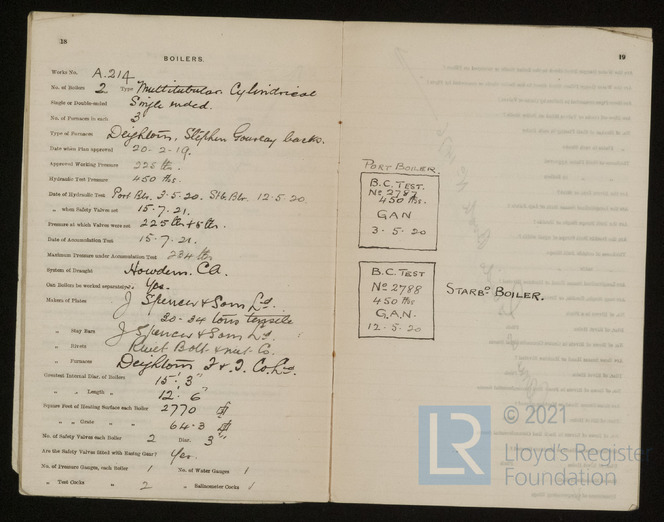 18
BOILERS.
Works No. A.214
No. of Boilers 2 Type Multitubular Cylindrical
Single or Double-ended Single ended.
No. of Furnaces in each 3
Type of Furnaces Deightons, Stephen Gourlay backs.
Date when Plan approved 20-2-19.
Approved Working Pressure 225 lbs.
Hydraulic Test Pressure 450 lbs.
Date of Hydraulic Test Port Blr. 3.5.20. Stb Blr. 12.5.20
„ when Safety Valves set 15.7.21.
Pressure at which Valves were set 225 lbs + 5 lbs.
Date of Accumulation Test 15.7.21.
Maximum Pressure under Accumulation Test 234 lbs
System of Draught Howden. C.A.
Can Boilers be worked separately? Yes.
Makers of Plates J Spencer & Sons Ld.
30-34 tons tensile
„ Stay Bars J Spencer & Sons Ld.
„ Rivets Rivet Bolt & Nut Co.
„ Furnaces Deighton F & T. Co. Ld.
Greatest Internal Diar. of Boilers 15' 3"
„ „ Length „ 12' 6"
Square Feet of Heating Surface each Boiler 2770
„ „ Grate „ „ 64.3
No. of Safety Valves each Boiler 2 Diar. 3"
Are the Safety Valves fitted with Easing Gear? Yes.
No. of Pressure Gauges, each Boiler 1 No. of Water Gauges 1
„ Test Cocks „ 2 „ Salinometer Cocks 1
19
PORT BOILER.
B.C. TEST.
No 2787
450 lbs.
GAN
3-5-20
B.C. TEST
No 2788
450 lbs
G.A.N.
12-5-20
STARBD BOILER.
LR
© 2021
Lloyd's Register
Foundation